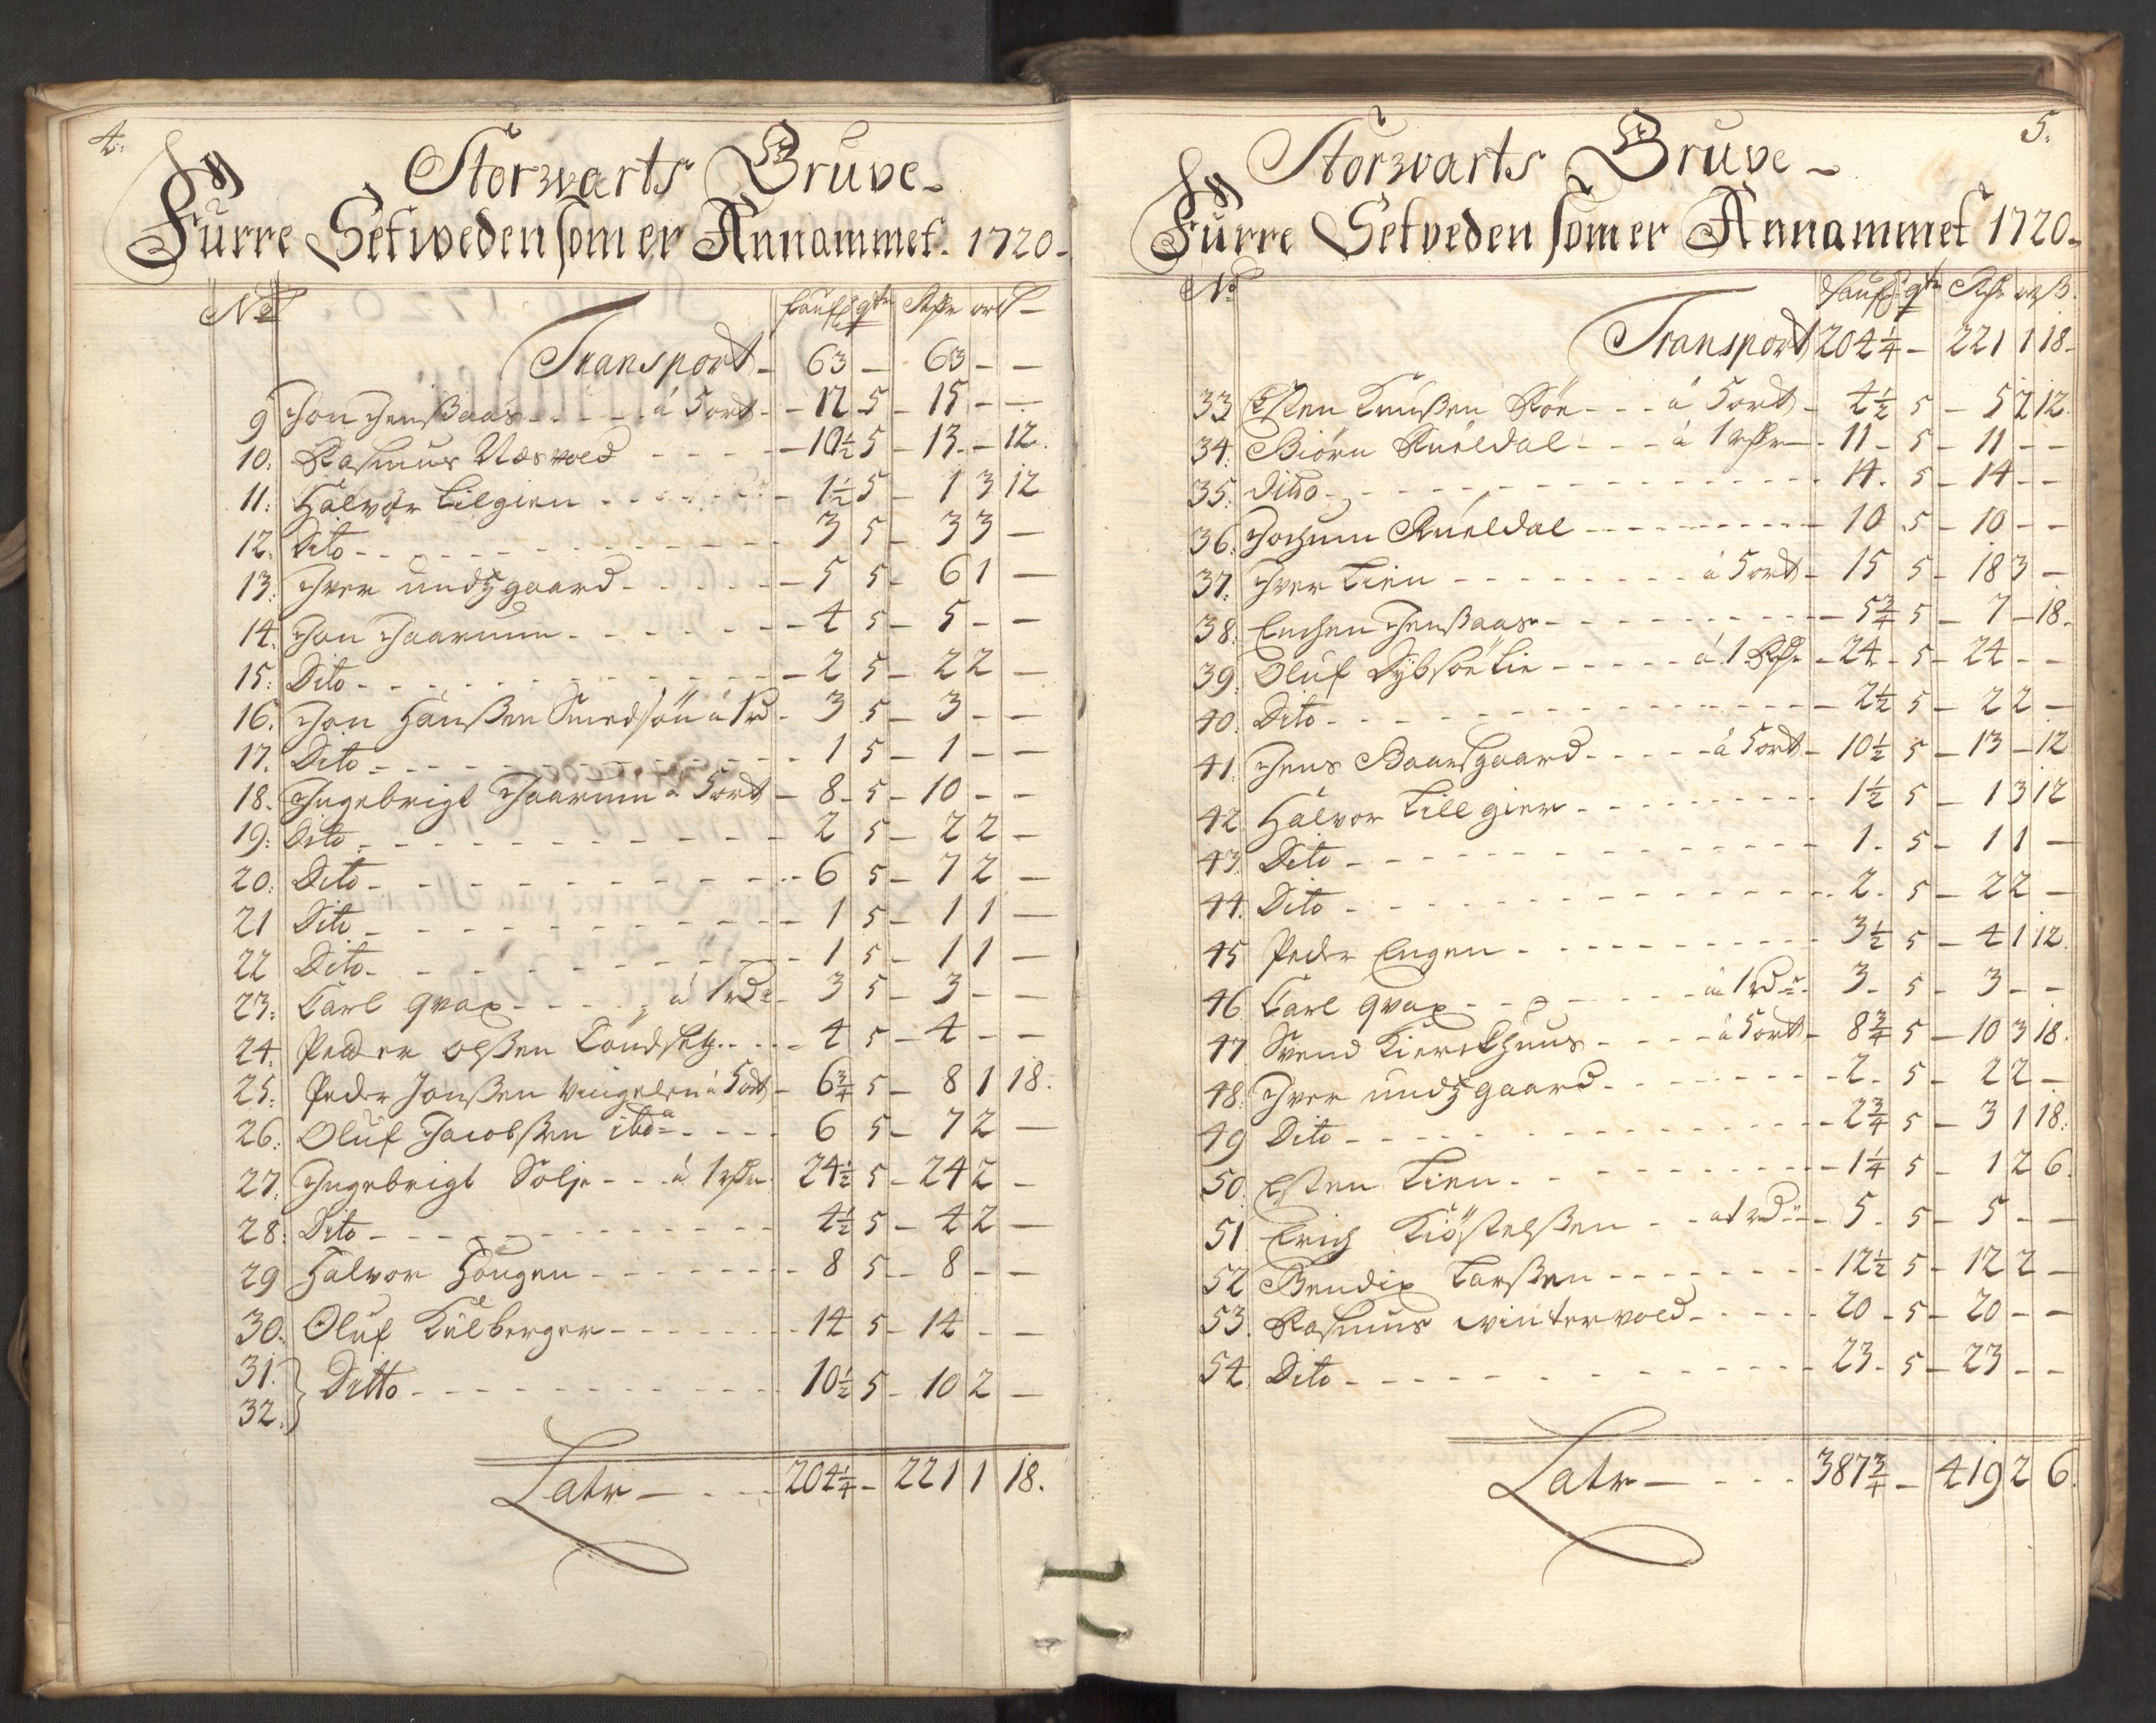 4.
Storwarts Gruve
Furre Setweden som er Annammet. 1720
No
faufl qtr Rdr ort ß
Transport - 63 - 63 - -
9 Jon Jenßaas - - - á 5 ort - 12 5 - 15 - -
10. Rasmus Næswold - - - 10½ 5 - 13 - 12.
11. Halvor Lilgien - - - 1½ 5 - 1 3 12
12. Dito - - - 3 5 - 3 3 -
13. Iver undzgaard - - - 5 5 - 6 1 -
14. Jon Joarum - - - 4 5 - 5 - -
15. Dito - - - 2 5 - 2 2 -
16. Jon Hanßen Smedsön á 1 rd - 3 5 - 3 - -
17. Dito - - - 1 5 - 1 - -
18. Ingebrigt Joarum á 5 ort - 8 - 5 - 10 - -
19. Dito - - - 2 5 - 2 2 -
20. Dito - - - 6 5 - 7 2 -
21 Dito - - - 1 5 - 1 1 -
22 Dito - - - 1 5 - 1 1 -
23. Carl qvax - - - á 1 rdr - 3 5 - 3 - -
24. Peder Olßen - - - 4 5 - 4 - -
25. Peder Jonßen Vingelen á 5 ort - 6¾ 5 - 8 1 18.
26. Oluf Jacobßen ibd - - - 6 5 - 7 2 -
27. Ingebrigt Solje - - - á 1 rdr 24½ 5 - 24 2 -
28. Dito - - - 4½ 5 - 4 2 -
29 Halvor Hougen - - - 8 5 - 8 - -
30. Oluf Külberger - - - 14 5 - 14 - -
31.
32. } Ditto - - - 10½ 5 - 10 2 -
Latr - - - 204¼ - 221 1 18.
5.
Storwarts Gruve -
Furre Setveden som er Annammet 1720
No
faufl qtr Rdr ort ß.
Transport 204¼ - 221 1 18 -
33 Esten Knußen Röe - - - á 5 ort - 4½ 5 - 5 2 12.
34. Biörn Rueldal - - - á 1 rdr - 11 - 5 - 11 - -
35. Ditto - - - 14. 5 - 14 - -
36. Jochum Rueldal - - - 10 5 - 10 - -
37. Iver Lien - - - á 5 ort - 15 5 - 18 3 -
38. Jenßaas - - - 5¾ 5 - 7 - 18.
39. Oluf Dybsöe Lie - - - á 1 Rdr - 24 - 5 - 24 - -
40. Dito - - - 2½ 5 - 2 2 -
41. Jens Baarsgaard - - - á 5 ort - 10½ 5 - 13 - 12
42. Halvor Lillgien - - - 1½ 5 - 1 3 12
43. Dito - - - 1. 5 - 1 1 -
44. Dito - - - 2. 5 - 2 2 -
45 Peder Engen - - - 3½ 5 - 4 1 12.
46 Carl qvax - - - á 1 rdr - 3 - 5 - 3 - -
47 Svend Kierckhuus - - - á 5 ort - 8¾ 5 - 10 3 18.
48. Iver undzgaard - - - 2 - 5 - 2 2 -
49 Dito - - - 2¾ 5 - 3 1 18.
50. Esten Lien - - - 1¼ 5 - 1 2 6.
51 Erich Kiöstelßen - - á 1 rdr - 5 - 5 - 5 - -
52 Bendix Larßen - - - 12½ 5 - 12 2 -
53. Rasmus wintervold - - - 20 - 5 - 20 - -
54. Dito - - - 23 - 5 - 23 - -
Latr - - - 387¾ - 419 2 6.